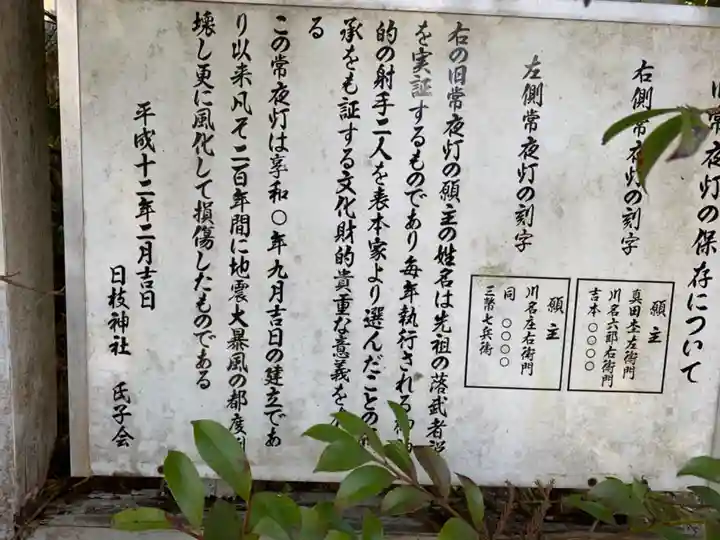 旧常夜灯の保存について
右側常夜灯の刻字
願主
真田杢左衛門
川名六郎右衛門
吉本〇〇〇〇
左側常夜灯の刻字
願主
川名庄右衛門
同 〇〇〇〇
三幣七兵衛
右の旧常夜灯の願主の姓名は先祖の落武者説
を実証するものであり毎年執行される
的の射手二人を表本家より選んだことの
承をも証する文化財的貴重な意義を
る
この常夜灯は享和〇年九月吉日の建立であ
り以来凡そ二百年間に地震大暴風の都度
壊し更に風化して損傷したものである
平成十二年二月吉日
日枝神社 氏子会